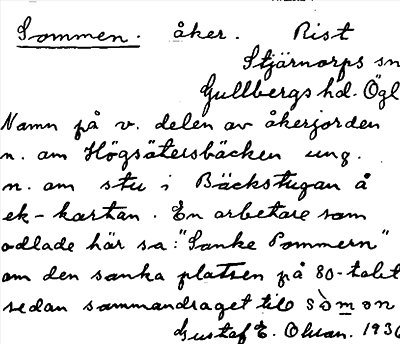 Sommen. åker. Rist
Stjärnorps sn
Gullbergs hd. Ögl
Namn på v. delen av åkerjorden
n. om Högsätersbäcken ung.
n. om stu i Bäckstugan å
ek-kartan. En arbetare som
odlade här sa: "Sanke Pommern"
om den sanka platsen på 80-talet
sedan sammandraget till sòmon
Gustaf E. Olsson. 1930